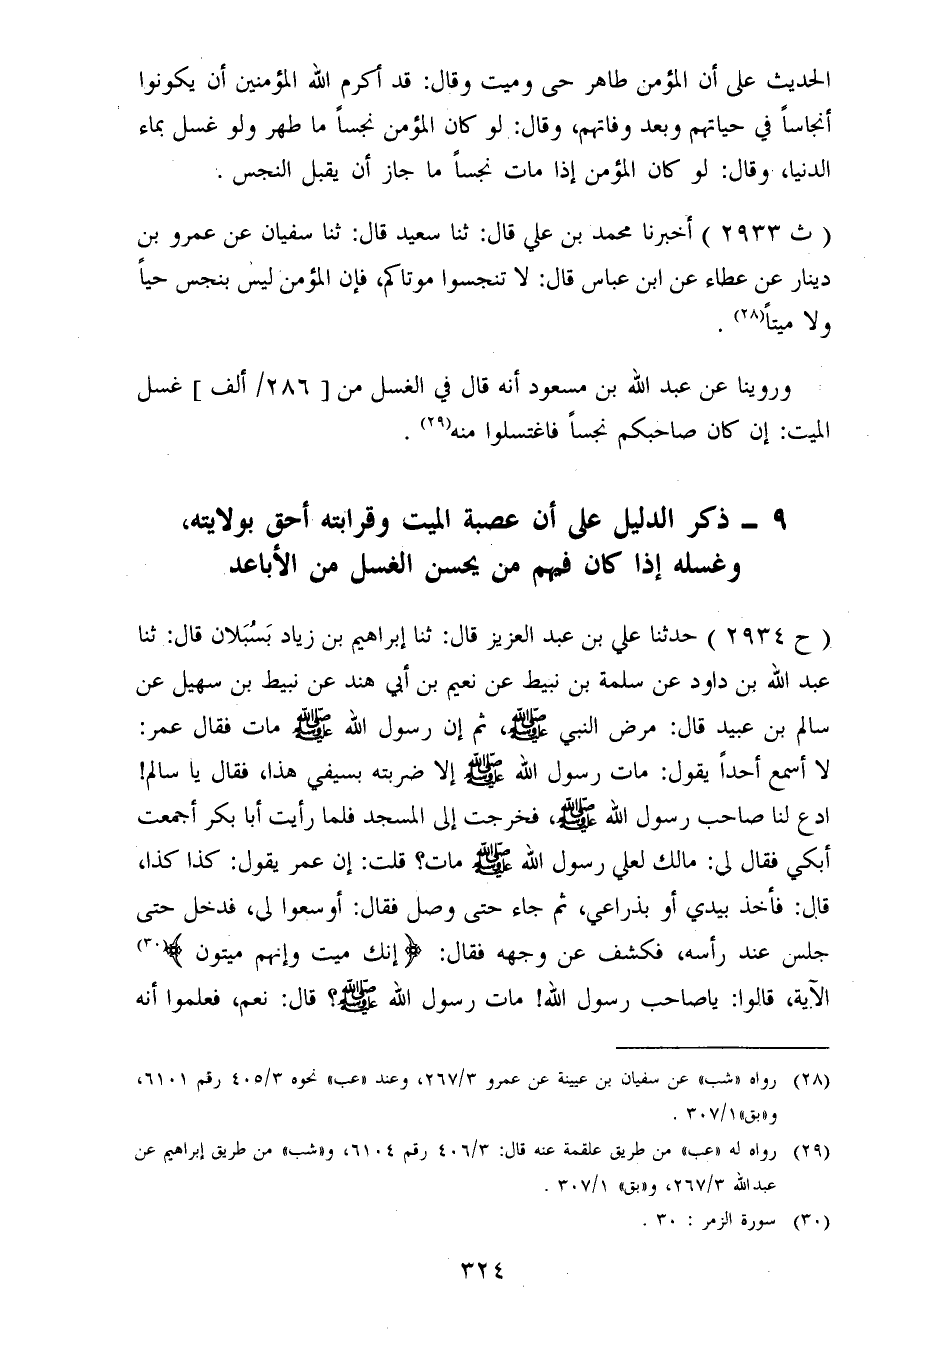 الحديث على أن المؤمن طاهر حى وميت وقال: قد أكرم الله المؤمنين أن يكونوا
أنجاساً في حياتهم وبعد وفاتهم، وقال: لو كان المؤمن نجساً ما طهر ولو غسل بماء
الدنيا، وقال: لو كان المؤمن إذا مات نجساً ما جاز أن يقبل النجس .
( ث ٢٩٣٣ ) أخبرنا محمد بن علي قال: ثنا سعيد قال: ثنا سفيان عن عمرو بن
دينار عن عطاء عن ابن عباس قال: لا تنجسوا موتاكم، فإن المؤمن ليس بنجس حياً
ولا ميتاً(٢٨) .
وروينا عن عبد الله بن مسعود أنه قال في الغسل من [ ٢٨٦/ ألف ] غسل
الميت: إن كان صاحبكم نجساً فاغتسلوا منه(٢٩) .
٩ ـ ذكر الدليل على أن عصبة الميت وقرابته أحق بولايته،
وغسله إذا كان فيهم من يحسن الغسل من الأباعد
( ح ٢٩٣٤ ) حدثنا علي بن عبد العزيز قال: ثنا إبراهيم بن زياد بَسُبَلان قال: ثنا
عبد الله بن داود عن سلمة بن نبيط عن نعيم بن أبي هند عن نبيط بن سهيل عن
سالم بن عبيد قال: مرض النبي ﷺ، ثم إن رسول الله ﷺ مات فقال عمر:
لا أسمع أحداً يقول: مات رسول الله ﷺ إلا ضربته بسيفي هذا، فقال يا سالم!
ادع لنا صاحب رسول الله ﷺ، فخرجت إلى المسجد فلما رأيت أبا بكر أجمعت
أبكي فقال لي: مالك لعلي رسول الله ﷺ مات؟ قلت: إن عمر يقول: كذا كذا،
قال: فأخذ بيدي أو بذراعي، ثم جاء حتى وصل فقال: أوسعوا لي، فدخل حتى
جلس عند رأسه، فكشف عن وجهه فقال: ﴿إنك ميت وإنهم ميتون ﴾(٣٠)
الآية، قالوا: ياصاحب رسول الله! مات رسول الله ﷺ؟ قال: نعم، فعلموا أنه
(٢٨) رواه «شب» عن سفيان بن عيينة عن عمرو ٢٦٧/٣، وعند «عب» نحوه ٤٠٥/٣ رقم ٦١٠١،
و«بق»٣٠٧/١ .
(٢٩) رواه له «عب» من طريق علقمة عنه قال: ٤٠٦/٣ رقم ٦١٠٤، و«شب» من طريق إبراهيم عن
عبدالله ٢٦٧/٣، و«بق» ٣٠٧/١ .
(٣٠) سورة الزمر : ٣٠ .
٣٢٤